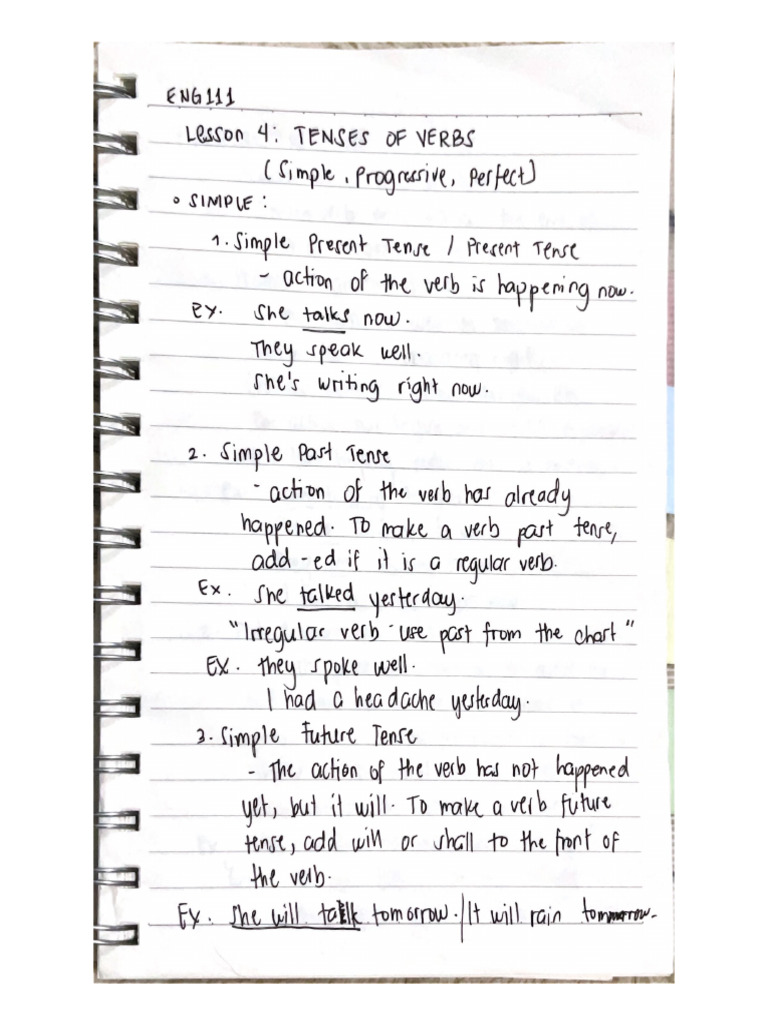 ENG111
Lesson 4: TENSES OF VERBS
(Simple, Progressive, Perfect)
• SIMPLE:
1. Simple Present Tense / Present Tense
- action of the verb is happening now.
Ex. She talks now.
They speak well.
She's writing right now.
2. Simple Past Tense
- action of the verb has already
happened. To make a verb past tense,
add -ed if it is a regular verb.
Ex. She talked yesterday.
"Irregular verb - use past from the chart"
EX. They spoke well.
I had a headache yesterday.
3. Simple Future Tense
- The action of the verb has not happened
yet, but it will. To make a verb future
tense, add will or shall to the front of
the verb.
Ex. She will talk tomorrow. / It will rain tommorow.